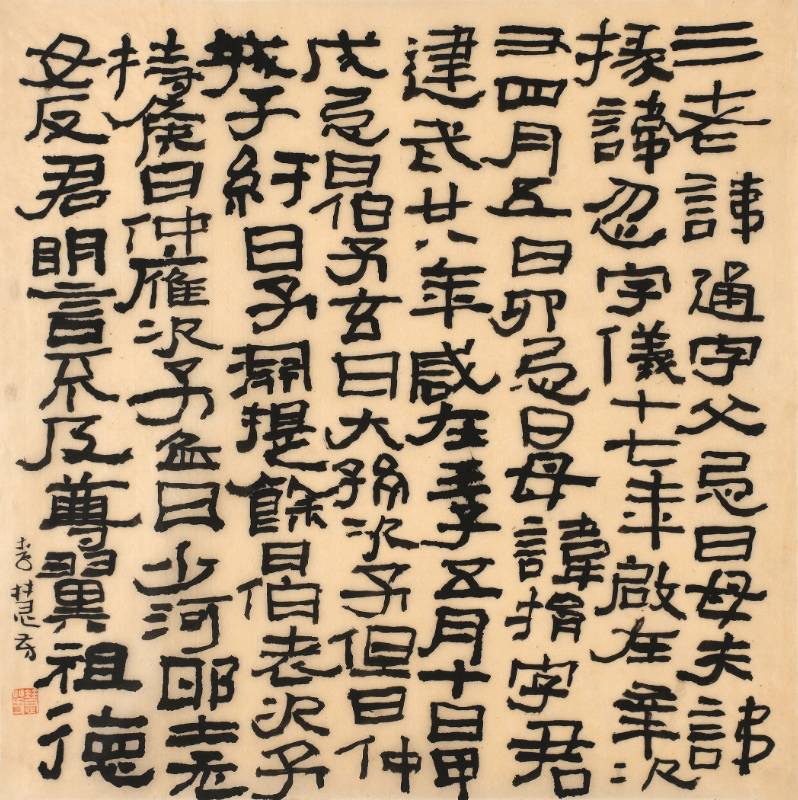 三老諱通字父忌日母失諱
掾諱忽字儀十七年在次
丑四月五日卯忌日母諱捐字君
建武廿八年在五月十日甲
戌忌日伯子玄曰大孫次子但曰仲
城子紆曰子淵提餘曰伯老次子
持侯曰仲雁次子盈曰少河
反君明言不及尊翼祖德